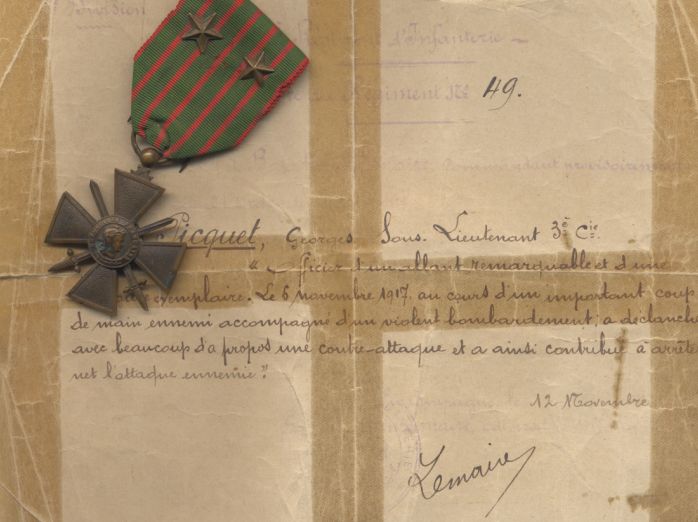 Division
d'Infanterie
Régiment No 49.
commandant provisoirement
Picquet, Georges Sous. Lieutenant 3e Cie.
" Officier d'un allant remarquable et d'une
exemplaire. Le 6 novembre 1917. au cours d'un important coup
de main ennemi accompagné d'un violent bombardement; a déclanché
avec beaucoup d'à propos une contre-attaque et a ainsi contribué à arrêter
net l'attaque ennemie."
12 Novembre
Lemaire